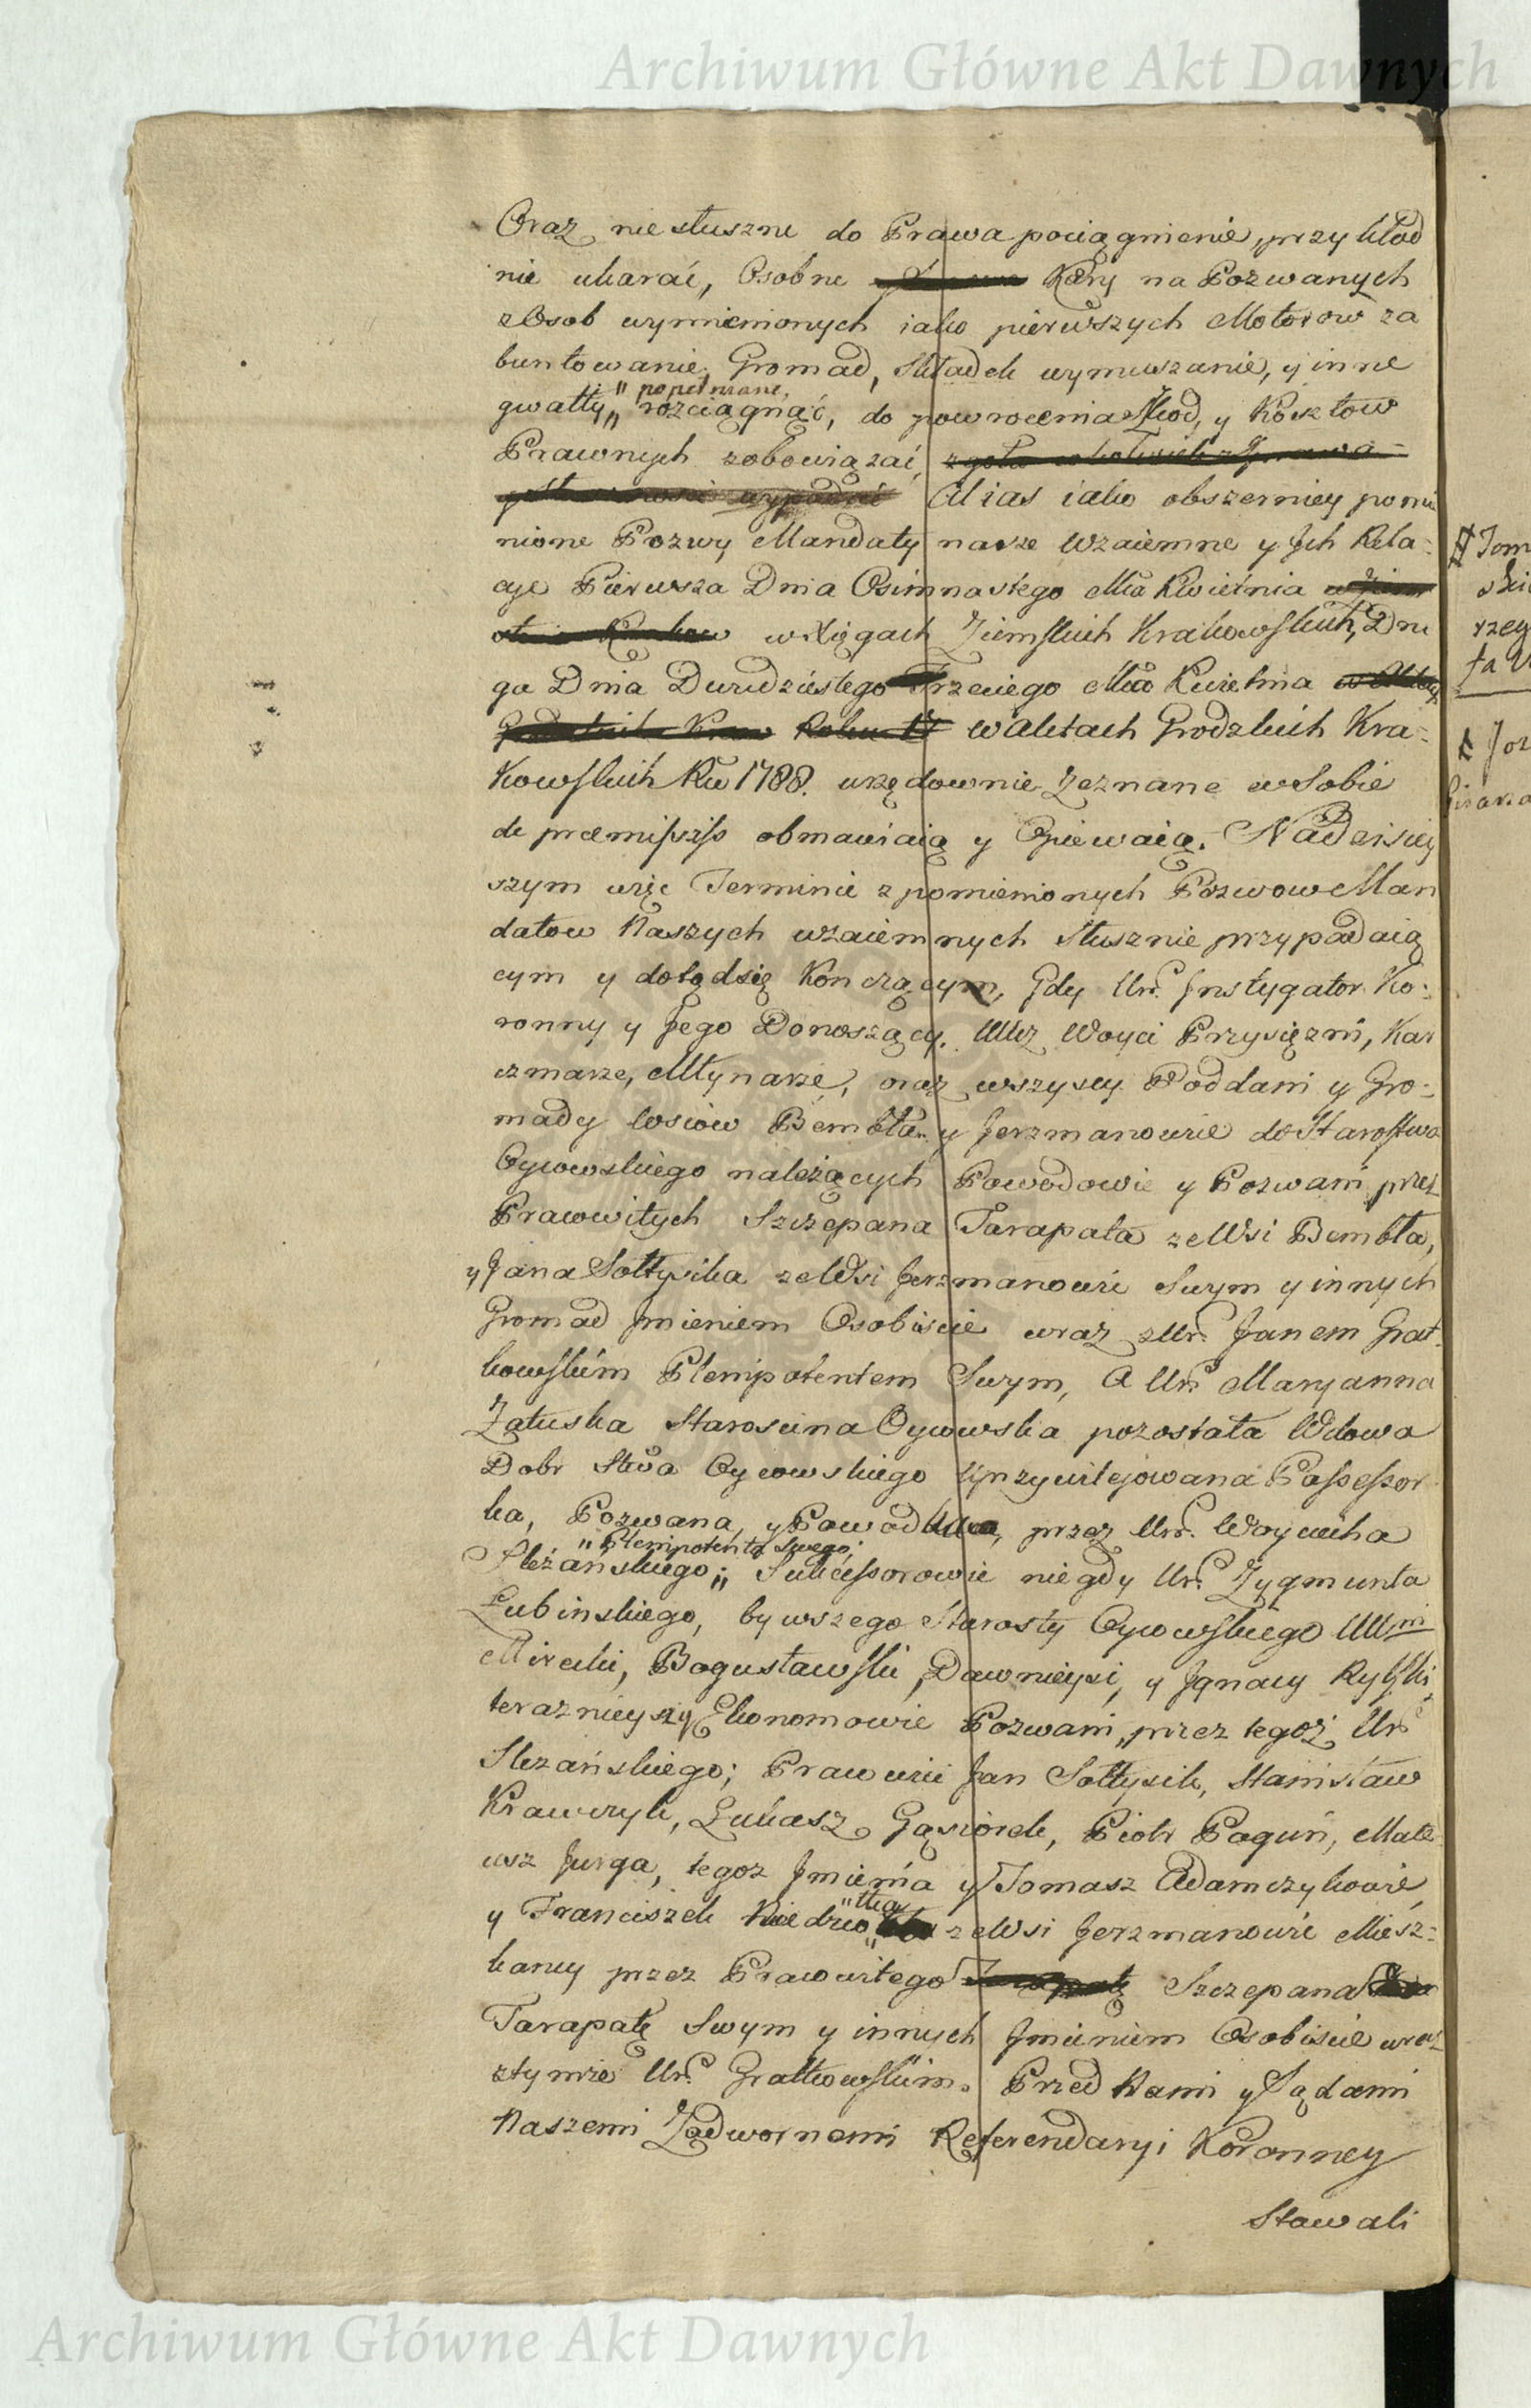 Archiwum Główne Akt Dawnych
Oraz niesłuszne do Prawa pociągnienie, przykład
nie ukarać, Osobne Kary na Pozwanych
z Osob wymienionych iako pierwszych Motorow za
buntowanie Gromad, Składek wymuszanie, y inne
gwałty „ popełniane, „ rozciągnąć, do powrocenia Szkod, y Kosztow
Prawnych zobowiązać,
Alias iako obszerniey pomie
nione Pozwy Mandaty nasze wzaiemne y Jch Rela-
cye Pierwsza Dnia Osimnastego Mca Kwietnia
w Xięgach Ziemskich Krakowskich, Dru
ga Dnia Dwudziestego Trzeciego Mca Kwietnia
w Aktach Grodzkich Kra-
kowskich Ru 1788. urzędownie Zeznane w Sobie
de præmissis obmawiaią y Opiewaią. Na dzisiey
szym więc Terminie z pomienionych Pozwow Man
datow Naszych wzaiemnych słusznie przypadaią
cym y dotąd się Konczącym, Gdy Ur. Jnstygator Ko-
ronny y Jego Donoszący, Woyci Przysiężni, Kar
czmarze, Młynarze, oraz wszyscy Poddani y Gro-
mady Wsiow Bembła y Jerzmanowic do Starostwa
Oycowskiego należących Powodowie y Pozwani przez
Prawowitych Szczepana Tarapata ze Wsi Bembła,
y Jana Sołtysika ze Wsi Jerzmanowic Swym y innych
Gromad Jmieniem Osobiscie wraz z Ur. Janem Grat
kowskim Plenipotentem Swym, A Ur. Maryanna
Załuska Starościna Oycowska pozostała Wdowa
Dobr Stwa Oycowskiego Uprzywilejowana Possessor
ka, Pozwana, y Powodka, przez Ur. Woyciecha
Sleżańskiego „ Plenipotenta Swego; „ Sukcessorowie niegdy Ur. Zygmunta
Łubinskiego, bywszego Starosty Oycowskiego UUni
Mirecki, Bogusławski, Dawnieysi, y Jgnacy Rylski
teraznieyszy Ekonomowie Pozwani, przez tegoż Ur.
Sleżańskiego; Prawowici Jan Sołtysik, Stanisław
Krawczyk, Łukasz Gąsiorek, Piotr Paguń, Mate
usz Jurga, tegoz Jmienia y Tomasz Adamczykowie,
y Franciszek Niedzwo „tka „ ze Wsi Jerzmanowic Miesz-
kancy przez Prawowitego Szczepana
Tarapatę Swym y innych Jmieniem Osobiscie wraz
z tymże Ur. Gratkowskim. Przed Nami y Sądami
Naszemi Zadwornemi Referendaryi Koronney
Stawali
Archiwum Główne Akt Dawnych